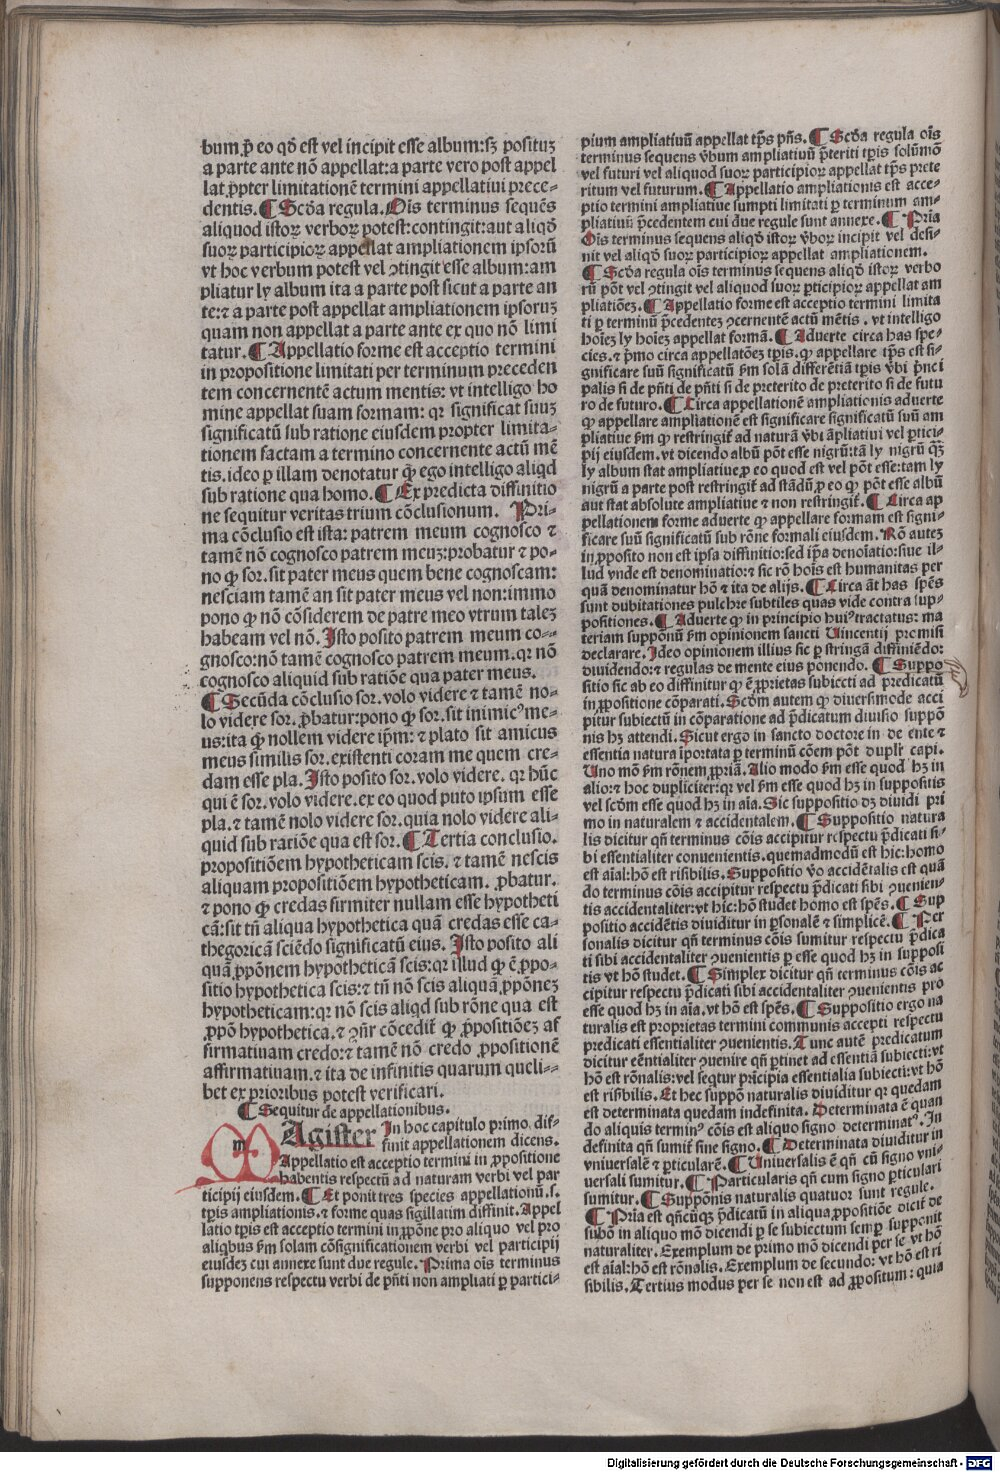 bum ꝓ eo qď est vel incipit esse album:sꝫ posituꝫ
a parte ante nō appellat:a parte vero post appel
lat ꝓpter limitationē termini appellatiui prece-
dentis. ¶ Scďa regula. Oīs terminus sequēs
aliquod istoꝝ verboꝝ potest:contingit:aut aliqď
suoꝝ participioꝝ appellat ampliationem ipsorū
vt hoc verbum potest vel ꝯtingit esse album:am
pliatur ly album ita a parte post sicut a parte an
te:⁊ a parte post appellat ampliationem ipsoruꝫ
quam non appellat a parte ante ex quo nō limi
tatur. ¶ Appellatio forme est acceptio termini
in propositione limitati per terminum preceden
tem concernentē actum mentis: vt intelligo ho
mine appellat suam formam: qꝛ significat suuꝫ
significatū sub ratione eiusdem propter limita-
tionem factam a termino concernente actū mē
tis.ideo ꝑ illam denotatur ꝙ ego intelligo aliqd
sub ratione qua homo. ¶ Ex predicta diffinitio
ne sequitur veritas trium cōclusionum. Pri-
ma cōclusio est ista: patrem meum cognosco ⁊
tamē nō cognosco patrem meuꝫ:probatur ⁊ po-
no ꝙ sor.sit pater meus quem bene cognoscam:
nesciam tamē an sit pater meus vel non:immo
pono ꝙ nō cōsiderem de patre meo vtrum taleꝫ
habeam vel nō. Isto posito patrem meum co-
gnosco:nō tamē cognosco patrem meum.qꝛ nō
cognosco aliquid sub ratiōe qua pater meus.
¶ Secūda cōclusio sor.volo videre ⁊ tamē no-
lo videre sor. ꝓbatur:pono ꝙ sor.sit inimicꝰ me-
us:ita ꝙ nollem videre ip̄m: ⁊ plato sit amicus
meus similis sor.existenti coram me quem cre-
dam esse pla. Isto posito sor.volo videre. qꝛ hūc
qui ē sor.volo videre.ex eo quod puto ipsum esse
pla.⁊ tamē nolo videre sor.quia nolo videre ali-
quid sub ratiōe qua est sor. ¶ Tertia conclusio.
propositiōem hypotheticam scis. ⁊ tamē nescis
aliquam propositiōem hypotheticam. ꝓbatur.
⁊ pono ꝙ credas firmiter nullam esse hypotheti
cā:sit tn̄ aliqua hypothetica quā credas esse ca-
thegoricā sciēdo significatū eius. Isto posito ali
quā ꝓpōnem hypotheticā scis:qꝛ illud ꝙ ē ꝓpo-
sitio hypothetica scis:⁊ tn̄ nō scis aliquā ꝓpōneꝫ
hypotheticam:qꝛ nō scis aliqd sub rōne qua est
ꝓpō hypothetica.⁊ ꝯn̄r cōcedit̄ ꝙ ꝓpositiōeꝫ af
firmatiuam credo:⁊ tamē nō credo ꝓpositionē
affirmatiuam.⁊ ita de infinitis quarum queli-
bet ex prioribus potest verificari.
¶ Sequitur de appellationibus.
MAgister In hoc capitulo primo dif-
finit appellationem dicens.
Appellatio est acceptio termini in ꝓpositione
habentis respectū ad naturam verbi vel par
ticipij eiusdem. ¶ Et ponit tres species appellationū.s.
tꝑis ampliationis.⁊ forme quas sigillatim diffinit.Appel
latio tꝑis est acceptio termini in ꝓpōne pro aliquo vel pro
aliqbus ẜm solam cōsignificationem verbi vel participij
eiusdeꝫ cui annexe sunt due regule. Prima oīs terminus
supponens respectu verbi de p̄nti non ampliati ꝑ partici-
pium ampliatiuū appellat tp̄s p̄ns. ¶ Scďa regula oīs
terminus sequens v̄bum ampliatiuū p̄teriti tꝑis solūmō
vel futuri vel aliquod suoꝝ participioꝝ appellat tp̄s prete
ritum vel futurum. ¶ Appellatio ampliationis est acce-
ptio termini ampliatiue sumpti limitati ꝑ terminum am-
pliatiuū p̄cedentem cui due regule sunt annexe. ¶ Pria
Oīs terminus sequens aliqď istoꝝ v̄boꝝ incipit vel desi-
nit vel aliqď suoꝝ participioꝝ appellat ampliationem.
¶ Scďa regula oīs terminus sequens aliqď istoꝝ verbo
rū pōt vel ꝯtingit vel aliquod suoꝝ ꝑticipioꝝ appellat am
pliatiōeꝫ. ¶ Appellatio forme est acceptio termini limita
ti ꝑ terminū p̄cedenteꝫ ꝯcernentē actū mētis . vt intelligo
hoīeꝫ ly hoīeꝫ appellat formā. ¶ Aduerte circa has spe-
cies.⁊ p̄mo circa appellatōeꝫ tꝑis.ꝙ appellare tp̄s est si-
gnificare suū significatū ẜm solā differētiā tꝑis v̄bi p̄nci
palis si de p̄nti de p̄nti si de preterito de preterito si de futu
ro de futuro. ¶ Circa appellationē ampliationis aduerte
ꝙ appellare ampliationē est significare significatū suū am
pliatiue ẜm ꝙ restringit̄ ad naturā v̄bi āpliatiui vel ꝑtici-
pij eiusdem.vt dicendo albū pōt esse nigrū:tā ly nigrū qꝫ
ly album stat ampliatiue ꝓ eo quod est vel pōt esse:tam ly
nigrū a parte post restringit̄ ad stādū ꝓ eo ꝙ pōt esse albū
aut stat absolute ampliatiue ⁊ non restringit̄. ¶ Circa ap
pellationem forme aduerte ꝙ appellare formam est signi-
ficare suū significatū sub rōne formali eiusdem. Rō auteꝫ
in ꝓposito non est ipsa diffinitio:sed ip̄a denoīatio:siue il-
lud vnde est denominatio:⁊ sic rō hoīs est humanitas per
quā denominatur hō ⁊ ita de alijs. ¶ Circa āt has sp̄es
sunt dubitationes pulchre subtiles quas vide contra sup-
positiones. ¶ Aduerte ꝙ in principio huiꝰ tractatus: ma
teriam suppōnū ẜm opinionem sancti Vincentij promisi
declarare. Ideo opinionem illius sic ꝑ stringā diffiniēdo:
diuidendo:⁊ regulas de mente eius ponendo. ¶ Suppo
sitio sic ab eo diffinitur ꝙ ē ꝓprietas subiecti ad predicatū
in ꝓpositione cōparati. Scďm autem ꝙ diuersimode acci
pitur subiectū in cōparatione ad p̄dicatum diuisio suppō
nis hꝫ attendi. Sicut ergo in sancto doctore in de ente ⁊
essentia natura īportata ꝑ terminū cōem pōt duplr̄ capi.
Uno mō ẜm rōnem ꝓpriā. Alio modo ẜm esse quod hꝫ in
alio:⁊ hoc dupliciter:qꝛ vel ẜm esse quod hꝫ in suppositis
vel scďm esse quod hꝫ in aīa. Sic suppositio dꝫ diuidi pri
mo in naturalem ⁊ accidentalem. ¶ Suppositio natura
lis dicitur qn̄ terminus cōis accipitur respectu p̄dicati si-
bi essentialiter conuenientis.quemadmodū est hic:homo
est aīal:hō est risibilis. Suppositio v̄o accidētalis est quā
do terminus cōis accipitur respectu p̄dicati sibi ꝯuenien-
tis accidentaliter:vt hic:hō studet homo est sp̄es. ¶ Sup
positio accidētis diuiditur in ꝑsonalē ⁊ simplicē. ¶ Per
sonalis dicitur qn̄ terminus cōis sumitur respectu p̄dica
ti sibi accidentaliter ꝯuenientis ꝑ esse quod hꝫ in supposi
tis vt hō studet. ¶ Simplex dicitur qn̄ terminus cōis ac
cipitur respectu p̄dicati sibi accidentaliter ꝯuenientis pro
esse quod hꝫ in aīa.vt hō est sp̄es. ¶ Suppositio ergo na
turalis est proprietas termini communis accepti respectu
predicati essentialiter ꝯuenientis. Tunc autē predicatum
dicitur eēntialiter ꝯuenire qn̄ ꝑtinet ad essentiā subiecti:vt
hō est rōnalis:vel seqtur pricipia essentialia subiecti:vt hō
est risibilis. Et hec suppō naturalis diuiditur qꝛ quedam
est determinata quedam indefinita. Determinata ē quan
do aliquis terminꝰ cōis est aliquo signo determinatꝰ. In
definita qn̄ sumit̄ sine signo. ¶ Determinata diuiditur in
vniuersalē ⁊ ꝑticularē. ¶ Uniuersalis ē qn̄ cū signo vni-
uersali sumitur. ¶ Particularis qn̄ cum signo ꝑticulari
sumitur. ¶ Suppōnis naturalis quatuor sunt regule.
¶ Pria est qn̄cūqꝫ p̄dicatū in aliqua ꝓpositiōe dicit̄ de
subō in aliquo mō dicendi ꝑ se subiectum semꝑ supponit
naturaliter. Exemplum de primo mō dicendi per se vt hō
est aīal:hō est rōnalis. Exemplum de secundo: vt hō est ri
sibilis. Tertius modus per se non est ad ꝓpositum: quia
Digitalisierung gefördert durch die Deutsche Forschungsgemeinschaft - DFG